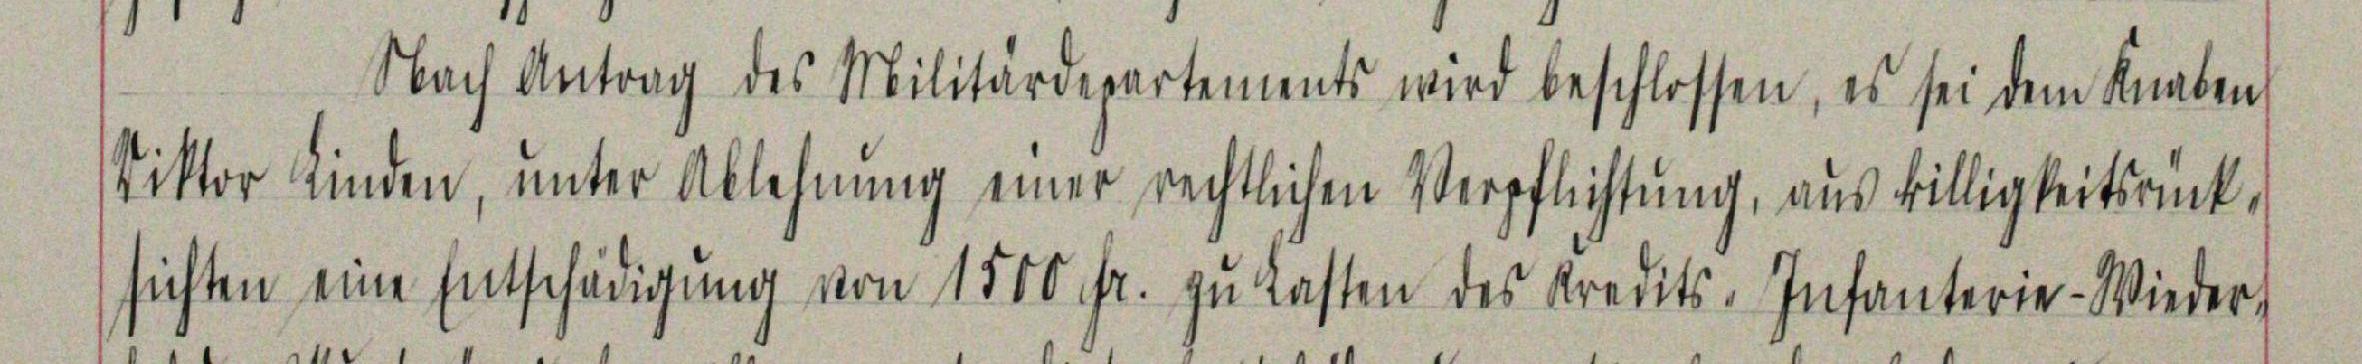 Nach Antrag des Militärdepartements wird beschlossen, es sei dem Knaben
Viktor Linden, unter Ablehnung einer rechtlichen Verpflichtung, aus billigkeitsrück-
sichten eine Entschädigung von 1500 fr. zu Lasten des Kredits. Infanterie-Wieder-